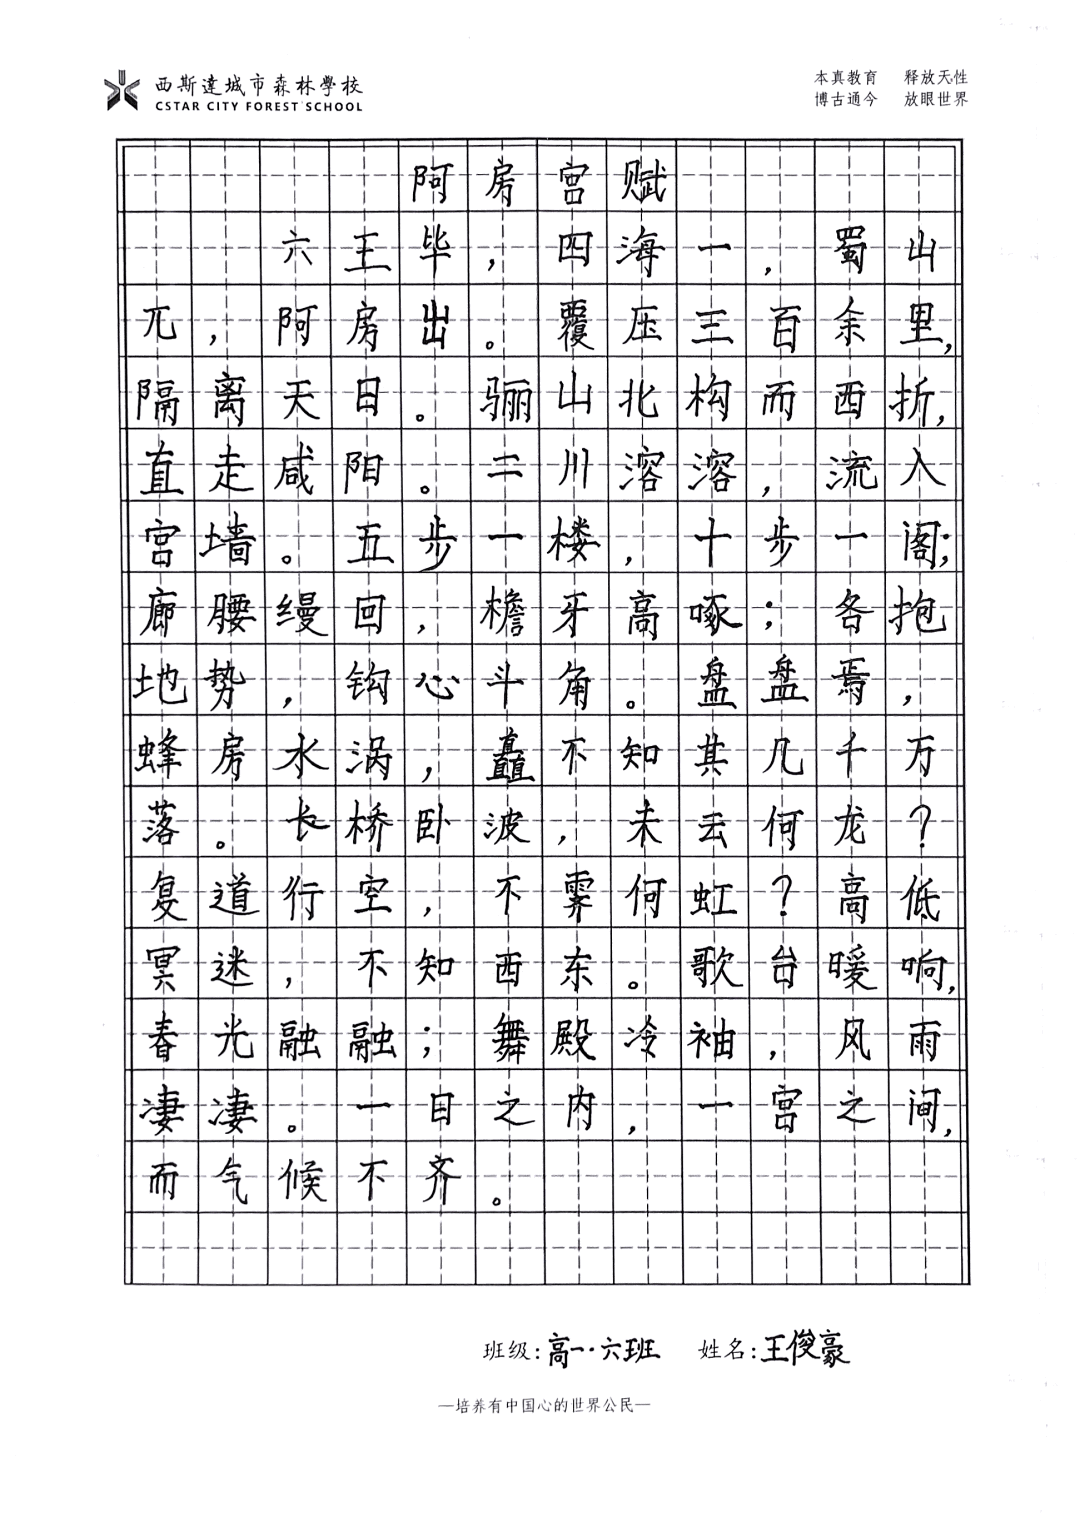 西斯達城市森林學校
CSTAR CITY FOREST SCHOOL
本真教育 释放天性
博古通今 放眼世界
阿房宫赋
六王毕，四海一，蜀山
兀，阿房出。覆压三百余里，
隔离天日。骊山北构而西折，
直走咸阳。二川溶溶，流入
宫墙。五步一楼，十步一阁；
廊腰缦回，檐牙高啄；各抱
地势，钩心斗角。盘盘焉，
蜂房水涡，矗不知其几千万
落。长桥卧波，未云何龙？
复道行空，不霁何虹？高低
冥迷，不知西东。歌台暖响，
春光融融；舞殿冷袖，风雨
凄凄。一日之内，一宫之间，
而气候不齐。
班级：高一·六班 姓名：王俊豪
—培养有中国心的世界公民—